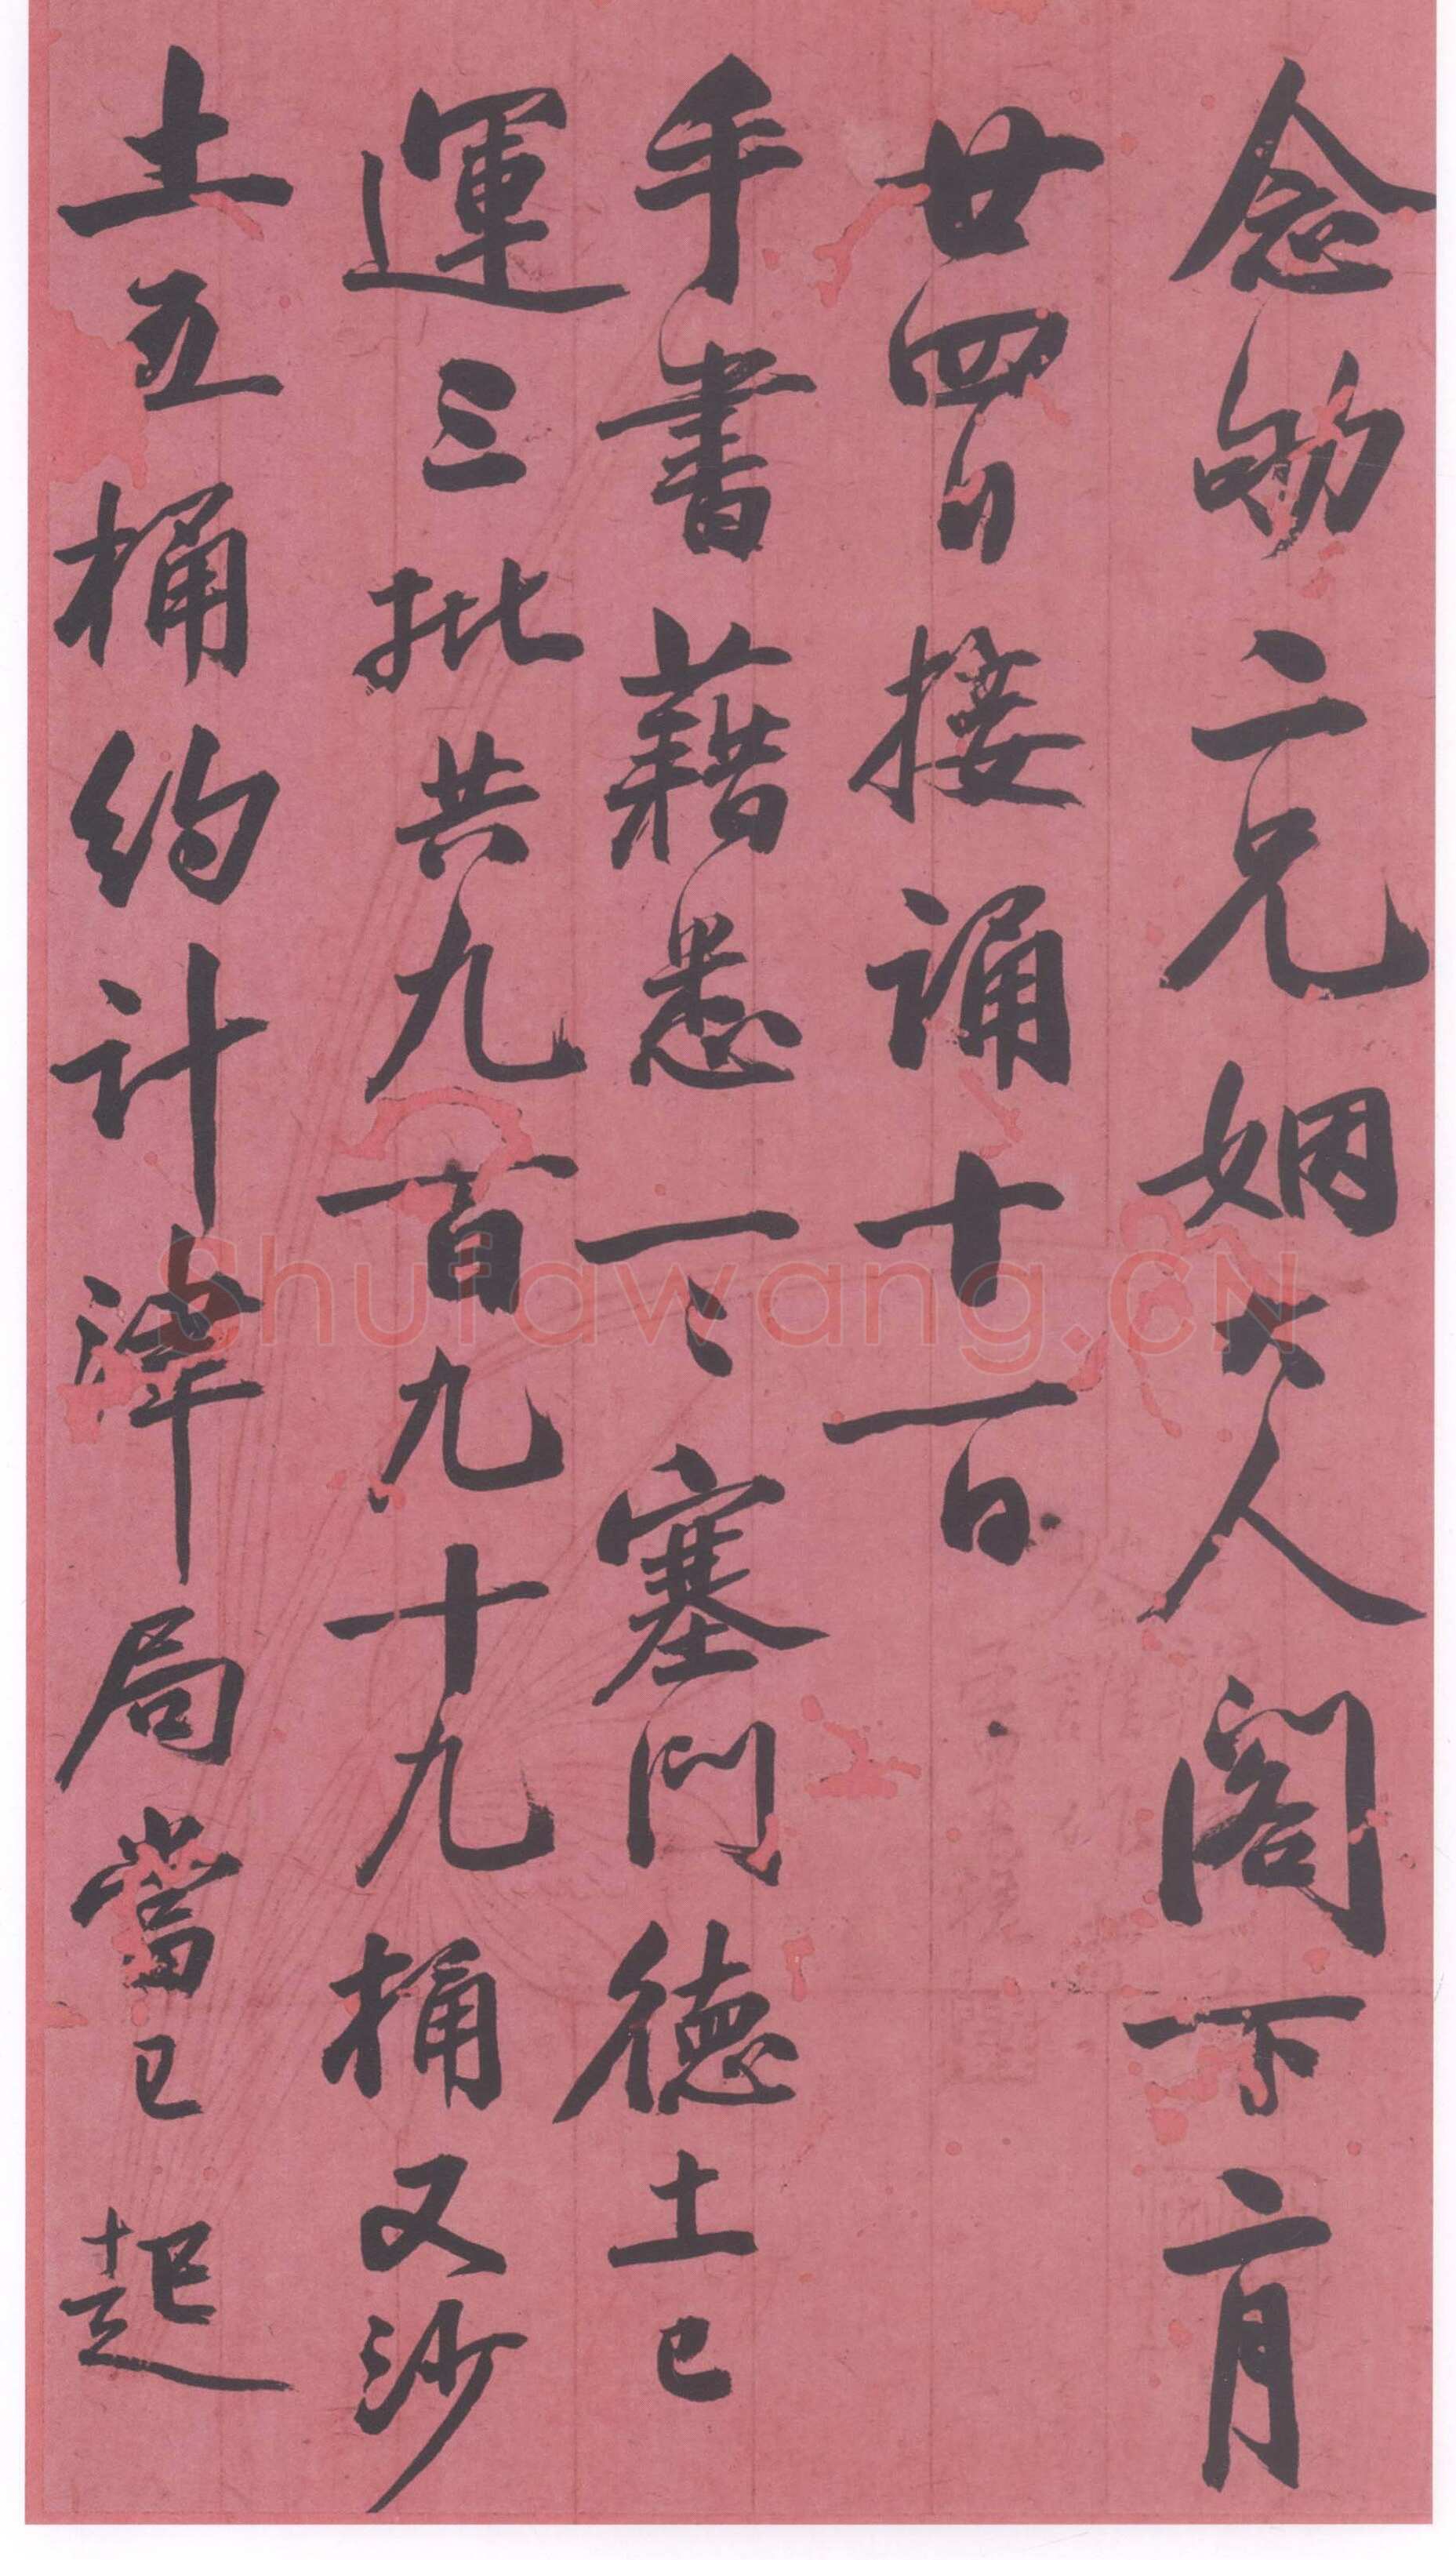 念劬二兄姻大人閣下二月
廿四日接誦十一日
手書藉悉一〻塞門德土已
運三批共九百九十九桶又沙
土五桶約計津局當已起
Shufawang.CN